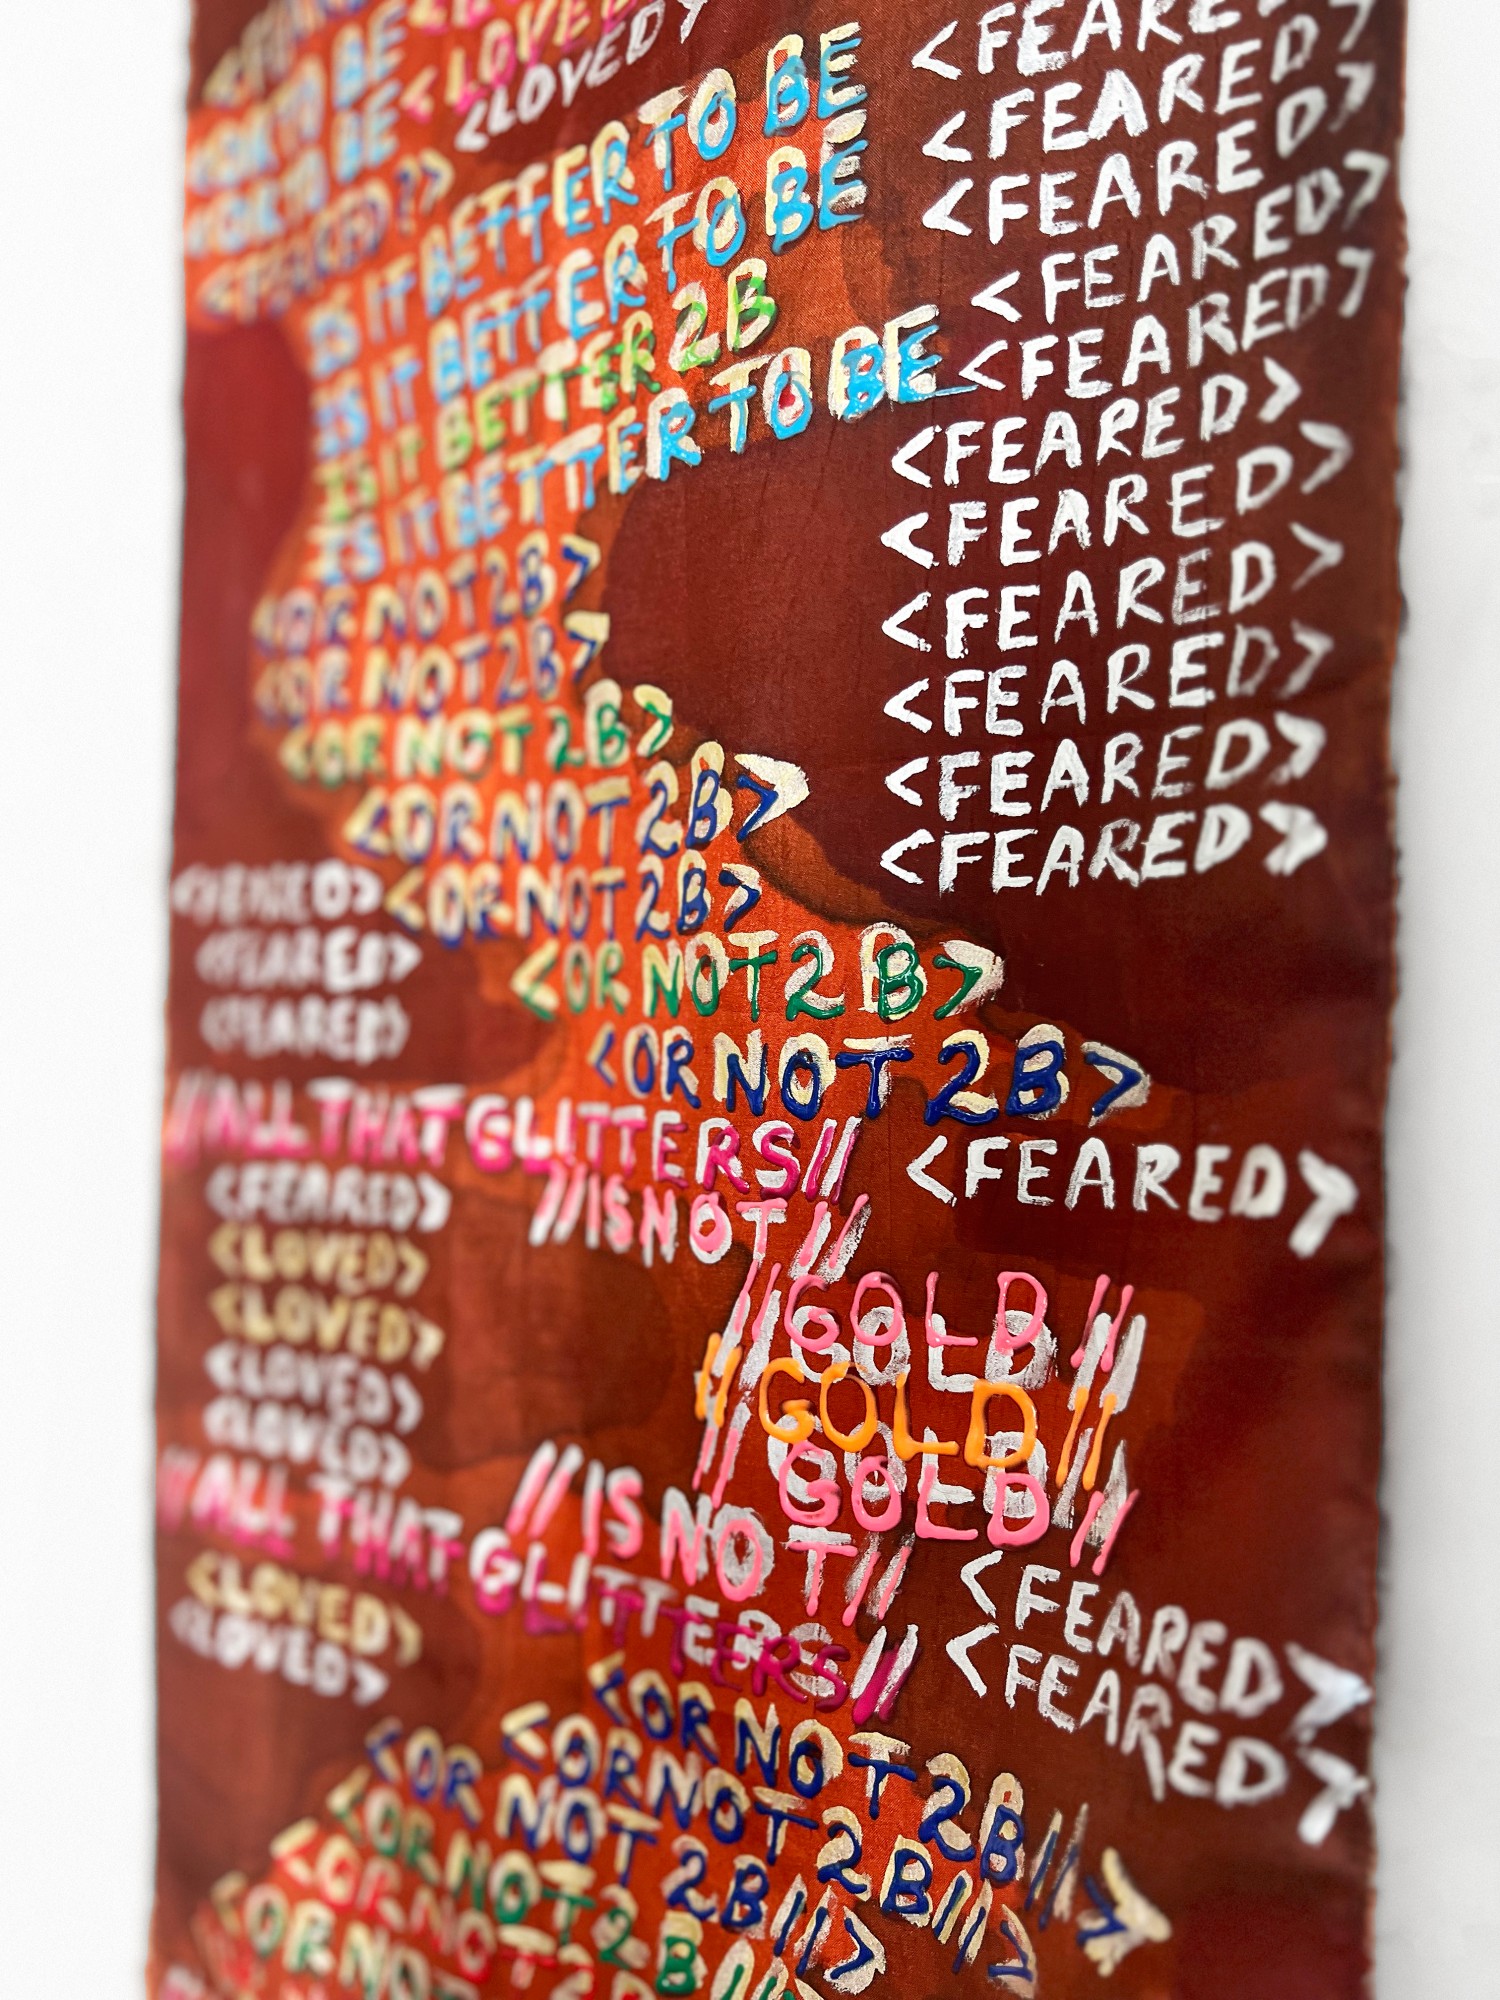 <LOVED>
<FEARED>
TO BE
<LOVED>
<FEARED>
TO BE
<FEARED>
IS IT BETTER TO BE
<FEARED>
IS IT BETTER TO BE
<FEARED>
IS IT BETTER 2B
<FEARED>
IS IT BETTER TO BE
<FEARED>
<OR NOT 2B>
<FEARED>
<OR NOT 2B>
<FEARED>
<OR NOT 2B>
<FEARED>
<OR NOT 2B>
<FEARED>
<OR NOT 2B>
<FEARED>
<OR NOT 2B>
<FEARED>
<OR NOT 2B>
//ALL THAT GLITTERS//
<FEARED>
<FEARED>
//IS NOT//
<LOVED>
//GOLD//
<LOVED>
//GOLD//
<LOVED>
//GOLD//
<LOVED>
//IS NOT//
//ALL THAT GLITTERS//
<FEARED>
<LOVED>
<FEARED>
<LOVED>
<OR NOT 2B//>
<OR NOT 2B//>
<OR NOT 2B//>
<OR NOT 2B//>
<OR NOT 2B
<OR NOT